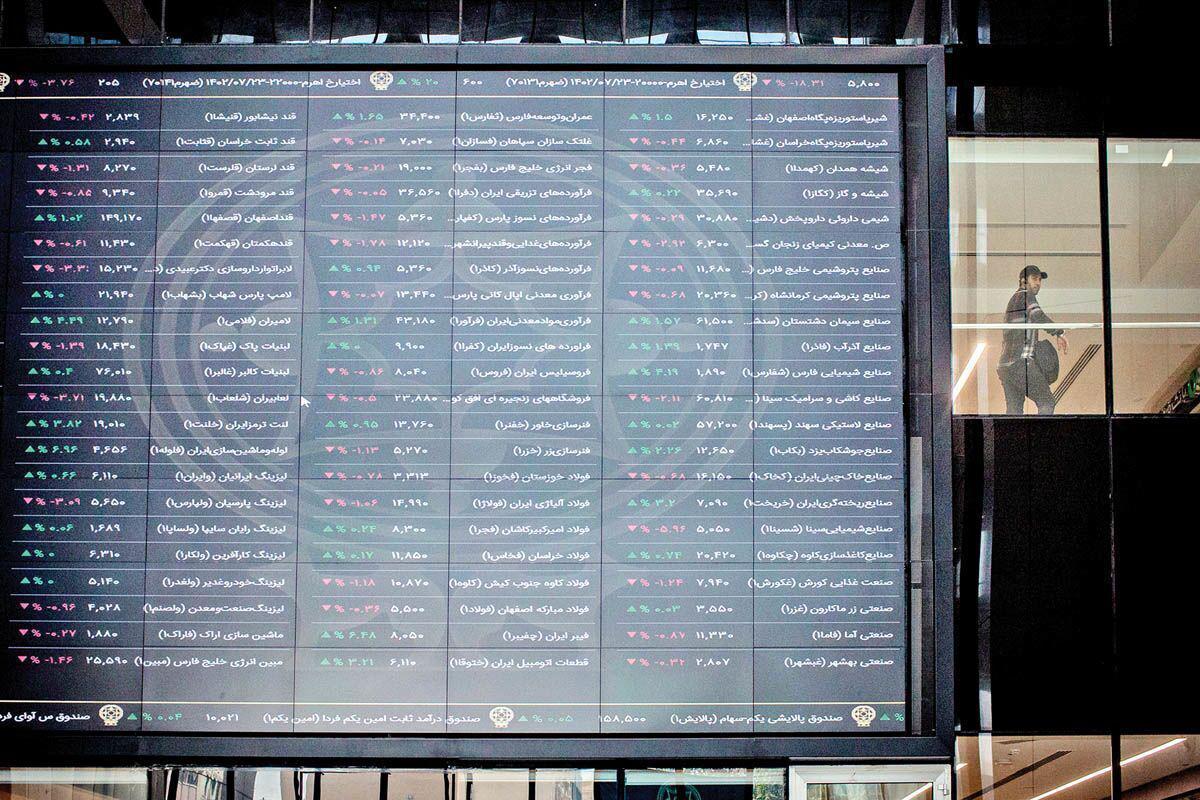 ۵,۸۰۰ -۱۸.۳۱ % ▼ اختیارخ اهرم-۲۰۰۰۰-۱۴۰۲/۰۷/۲۳ (ضهرم۷۰۱۳۱) ۶۰۰ ۲۰ % ▲ اختیارخ اهرم-۲۲۰۰۰-۱۴۰۲/۰۷/۲۳ (ضهرم۷۰۱۴۱) ۲۰۵ -۳.۷۶ % ▼
شیرپاستوریزه‌پگاه‌اصفهان (غشـ... ۱۶,۲۵۰ ۱.۵ % ▲
شیرپاستوریزه‌پگاه‌خراسان (غشا... ۶,۸۶۰ -۰.۴۴ % ▼
شیشه همدان (کهمدا۱) ۵,۴۸۰ -۰.۳۶ % ▼
شیشه و گاز (کگاز۱) ۳۵,۶۹۰ ۰.۲۲ % ▲
شیمی داروئی داروپخش (دشیـ... ۳۰,۸۸۰ -۰.۲۹ % ▼
ص. معدنی کیمیای زنجان گسـ... ۶,۳۰۰ -۲.۹۲ % ▼
صنایع پتروشیمی خلیج فارس (... ۱۱,۶۸۰ -۰.۰۹ % ▼
صنایع پتروشیمی کرمانشاه (کر... ۲۰,۳۶۰ -۰.۶۸ % ▼
صنایع سیمان دشتستان (سدشـ... ۶۱,۵۰۰ ۱.۵۷ % ▲
صنایع آذرآب (فاذر۱) ۱,۷۴۷ ۱.۳۹ % ▲
صنایع شیمیایی فارس (شفارس۱) ۱,۸۹۰ ۴.۱۹ % ▲
صنایع کاشی و سرامیک سینا (... ۶۰,۸۱۰ -۲.۱۱ % ▼
صنایع لاستیکی سهند (پسهند۱) ۵۷,۲۰۰ ۰.۰۲ % ▲
صنایع‌جوشکاب‌یزد (بکاب۱) ۱۲,۶۵۰ ۲.۲۶ % ▲
صنایع‌خاک‌چینی‌ایران (کخاک۱) ۱۶,۱۵۰ -۰.۶۸ % ▼
صنایع‌ریخته‌گری‌ایران (خریخت۱) ۷,۰۹۰ ۳.۲ % ▲
صنایع‌شیمیایی‌سینا (شسینا۱) ۵,۰۵۰ -۵.۹۶ % ▼
صنایع‌کاغذسازی‌کاوه (چکاوه۱) ۲۰,۴۲۰ ۰.۷۴ % ▲
صنعت غذایی کورش (غکورش۱) ۷,۹۴۰ -۱.۲۴ % ▼
صنعتی زر ماکارون (غزر۱) ۳,۵۵۰ ۰.۰۳ % ▲
صنعتی آما (فاما۱) ۱۱,۳۳۰ -۰.۸۷ % ▼
صنعتی بهشهر (غبشهر۱) ۲,۸۰۷ -۰.۳۲ % ▼
عمران‌وتوسعه‌فارس (ثفارس۱) ۳۴,۴۰۰ ۱.۶۵ % ▲
غلتک سازان سپاهان (فسازان۱) ۷,۰۳۰ -۰.۱۴ % ▼
فجر انرژی خلیج فارس (بفجر۱) ۱۹,۰۰۰ -۰.۲۱ % ▼
فرآورده‌های تزریقی ایران (دفرا۱) ۳۶,۵۶۰ -۰.۰۵ % ▼
فرآورده‌های نسوز پارس (کفپار... ۵,۳۶۰ -۱.۴۷ % ▼
فرآورده‌های‌غذایی‌وقندپیرانشهر... ۱۲,۱۲۰ -۱.۷۸ % ▼
فرآورده‌های‌نسوزآذر (کاذر۱) ۵,۳۶۰ ۰.۹۴ % ▲
فرآوری معدنی اپال کانی پارس... ۱۳,۴۴۰ -۰.۰۷ % ▼
فرآوری‌موادمعدنی‌ایران (فرآور۱) ۴۳,۱۸۰ ۱.۳۱ % ▲
فراورده های نسوزایران (کفرا۱) ۹,۹۰۰ ۰ % ▲
فروسیلیس ایران (فروس۱) ۸,۰۴۰ -۰.۸۶ % ▼
فروشگاههای زنجیره ای افق کو... ۲۳,۸۸۰ -۰.۵ % ▼
فنرسازی‌خاور (خفنر۱) ۱۳,۷۶۰ ۰.۹۵ % ▲
فنرسازی‌زر (خزر۱) ۵,۲۷۰ -۱.۱۳ % ▼
فولاد خوزستان (فخوز۱) ۳,۳۱۳ -۰.۷۸ % ▼
فولاد آلیاژی ایران (فولاژ۱) ۱۴,۹۹۰ -۱.۰۶ % ▼
فولاد امیرکبیرکاشان (فجر۱) ۸,۳۰۰ ۰.۲۴ % ▲
فولاد خراسان (فخاس۱) ۱۱,۸۵۰ ۰.۱۷ % ▲
فولاد کاوه جنوب کیش (کاوه۱) ۱۰,۸۷۰ -۱.۱۸ % ▼
فولاد مبارکه اصفهان (فولاد۱) ۵,۵۰۰ -۰.۳۶ % ▼
فیبر ایران (چفیبر۱) ۸,۰۵۰ ۶.۴۸ % ▲
قطعات اتومبیل ایران (ختوقا۱) ۶,۱۱۰ ۳.۲۱ % ▲
قند نیشابور (قنیشا۱) ۲,۸۳۹ -۰.۴۲ % ▼
قند ثابت خراسان (قثابت۱) ۲,۹۴۰ ۰.۵۸ % ▲
قند لرستان (قلرست۱) ۸,۲۷۰ -۱.۳۱ % ▼
قند مرودشت (قمرو۱) ۹,۳۴۰ -۰.۸۵ % ▼
قنداصفهان (قصفها۱) ۱۴۹,۱۷۰ ۱.۰۲ % ▲
قندهکمتان (قهکمت۱) ۱۱,۴۳۰ -۰.۶۱ % ▼
لابراتوارداروسازی دکترعبیدی (د... ۱۵,۲۳۰ % ▼
لامپ پارس شهاب (بشهاب۱) ۲۱,۹۴۰ ۰ % ▲
لامیران (فلامی۱) ۱۲,۷۹۰ ۴.۴۹ % ▲
لبنیات پاک (غپاک۱) ۱۸,۴۳۰ -۱.۳۹ % ▼
لبنیات کالبر (غالبر۱) ۷۶,۰۱۰ ۰.۴ % ▲
لعابیران (شلعاب۱) ۱۹,۸۸۰ -۳.۷۱ % ▼
لنت ترمزایران (خلنت۱) ۱۹,۰۱۰ ۳.۸۲ % ▲
لوله‌وماشین‌سازی‌ایران (فلوله۱) ۴,۶۵۶ ۶.۹۶ % ▲
لیزینگ ایرانیان (وایران۱) ۶,۱۱۰ ۰.۶۶ % ▲
لیزینگ پارسیان (ولپارس۱) ۵,۶۵۰ -۳.۰۹ % ▼
لیزینگ رایان سایپا (ولساپا۱) ۱,۶۸۹ ۰.۰۶ % ▲
لیزینگ کارآفرین (ولکار۱) ۶,۳۱۰ ۰ % ▲
لیزینگ‌خودروغدیر (ولغدر۱) ۵,۱۴۰ ۰ % ▲
لیزینگ‌صنعت‌ومعدن (ولصنم۱) ۴,۰۲۸ -۰.۹۶ % ▼
ماشین سازی اراک (فاراک۱) ۱,۸۸۰ -۰.۲۷ % ▼
مبین انرژی خلیج فارس (مبین۱) ۲۵,۵۹۰ -۱.۴۶ % ▼
% ▲ صندوق پالایشی یکم-سهام (پالایش۱) ۱۵۸,۵۰۰ ۰.۰۵ % ▲ صندوق درآمد ثابت امین یکم فردا (امین یکم۱) ۱۰,۰۲۱ ۰.۰۴ % ▲ صندوق س آوای فر